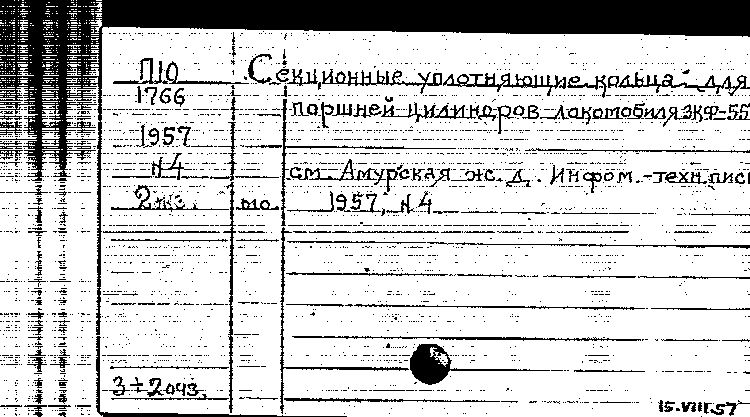 П10 Секционные уплотняющие кольца для
1766 поршней цилиндров локомобиля ЗКФ-55
1957
N4 см. Амурская ж. д. Информ.-техн.
2жз. мо. 1957, N4
3+2очз.
15.VIII.57